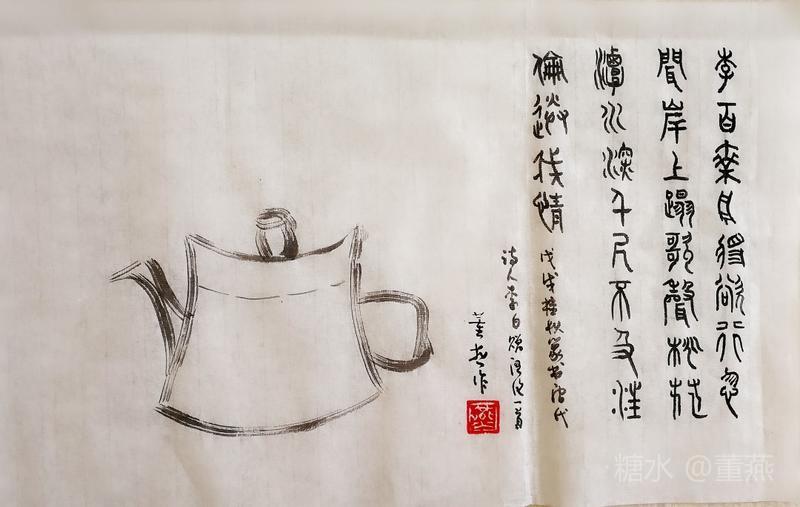 李白乘舟將欲行忽
聞岸上蹋歌聲桃花
潭水深千尺不及汪
倫送我情
戊戌桂秋篆书唐代
诗人李白赠汪伦一首
董燕作
燕
糖水 @董燕